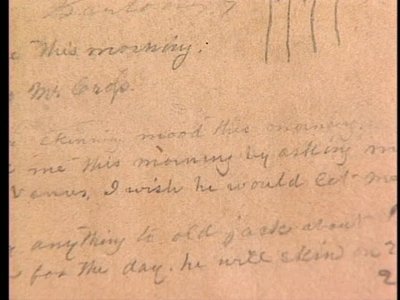 this morning.
Mr Crop.
skinning mood this morning.
me this morning by asking m
I wish he would let me
anything to old jack about
for the day. he will skin on